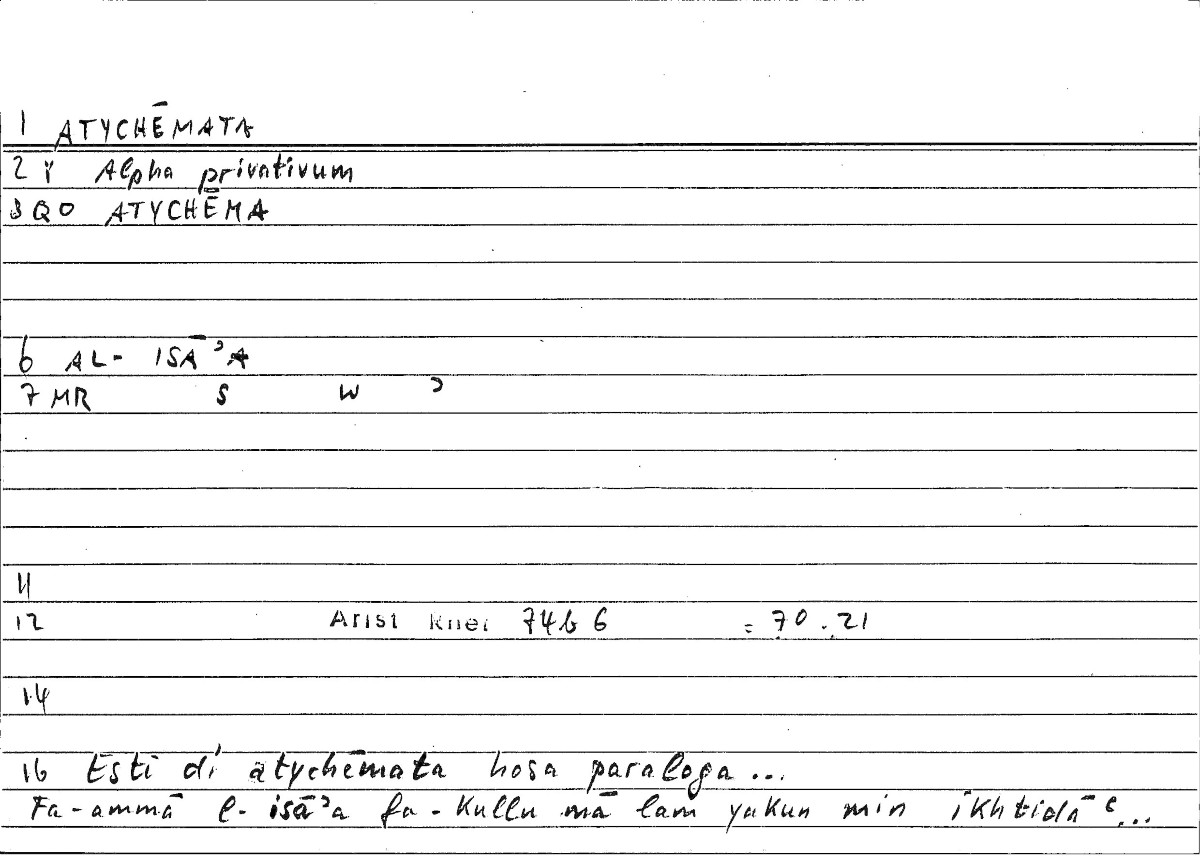 1 ATYCHĒMATA
2 Y Alpha privativum
3 QO ATYCHĒMA
6 AL- ISĀʾA
7 MR S W ʾ
11
12 Arist Rhet 74b6 = 70.21
14
16 Esti d' atychēmata hosa paraloga...
Fa-ammā l-isāʾa fa-kullu mā lam yakun min ikhtidāʿ...